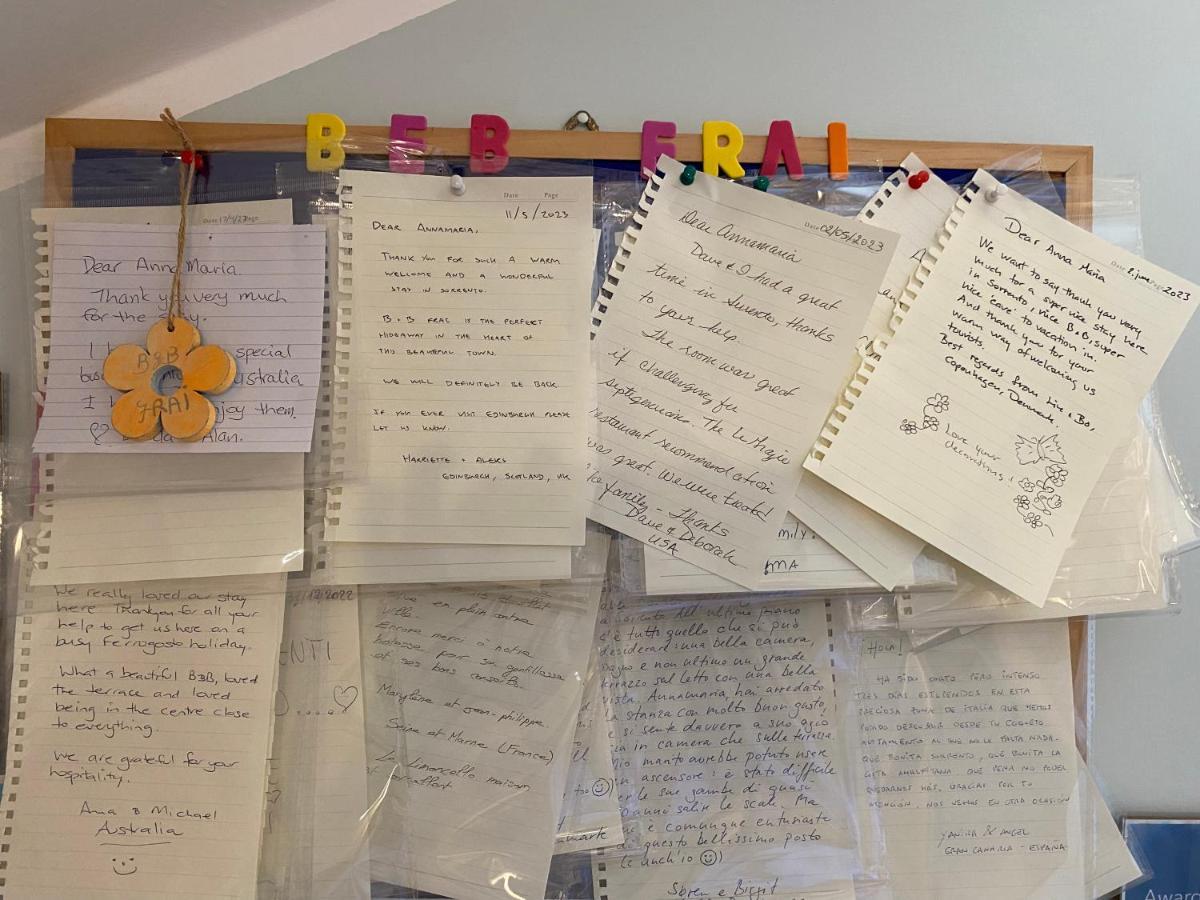 B E B F R A I
Date 17/4/23 Page
Dear Anna Maria.
Thank you very much
for the stay.
special
Australia
I enjoy them.
Alan.
B&B
FRAI
Date Page
11/5/2023
DEAR ANNAMARIA,
THANK YOU FOR SUCH A WARM
WELCOME AND A WONDERFUL
STAY IN SORRENTO.
B+B FRAI IS THE PERFECT
HIDEAWAY IN THE HEART OF
THIS BEAUTIFUL TOWN.
WE WILL DEFINITELY BE BACK.
IF YOU EVER VISIT EDINBURGH PLEASE
LET US KNOW.
HARRIETTE + ALEKS
EDINBURGH, SCOTLAND, UK
Date 02/05/2023
Dear Annamaria
Dave & I had a great
time in Sorrento, thanks
to your help.
The room was great
if challenging for
septegenarians. The
restaurant recommendation
was great. We were treated
like family - Thanks
Dave & Deborah
USA
mily.
MA
Date 2. june 2023
Dear Anna Maria
We want to say thank you very
much for a super nice stay here
in Sorrento, nice B&B, super
nice 'cave' to vacation in.
And thank you for your
warm way of welcoming us
tourists.
Best regards from Liv & Bo,
Copenhagen, Denmark.
Love your
decorations!
We really loved our stay
here. Thankyou for all your
help to get us here on a
busy Ferrogosto holiday.
What a beautiful B&B, loved
the terrace and loved
being in the centre close
to everything.
We are grateful for your
hospitality.
Anna & Michael
Australia
12/2022
ENTI
en plein centre
ville.
Encore merci à notre
hôtesse pour sa gentillesse
et ses bons conseils.
Marylène et Jean-philippe.
Seine et Marne (France)
Le Limoncello maison
est
a Sorrento. All'ultimo piano
c'è tutto quello che si può
desiderare: una bella camera,
bagno e non ultimo un grande
terrazzo sul tetto con una bella
vista. Annamaria, hai arredato
la stanza con molto buon gusto,
e si sente davvero a suo agio
sia in camera che sulla terrazza.
Mio marito avrebbe potuto usare
un ascensore: è stato difficile
per le sue gambe di quasi
anni salire le scale. Ma
è comunque entusiasta
di questo bellissimo posto
(e anch'io ☺)
Søren e Birgit
HOLA!
HA SIDO CORTO PERO INTENSO.
TRES DIAS ESTUPENDOS EN ESTA
PRECIOSA ZONA DE ITALIA QUE HEMOS
PODIDO DESCUBRIR DESDE TU COQUETO
APARTAMENTO AL QUE NO LE FALTA NADA.
QUE BONITA SORRENTO, QUE BONITA LA
COSTA AMALFITANA. QUE PENA NO PODER
QUEDARNOS MÁS. GRACIAS POR TU
ATENCIÓN. NOS VEMOS EN OTRA OCASIÓN
YANIRA & ANGEL
GRAN CANARIA - ESPAÑA
Award